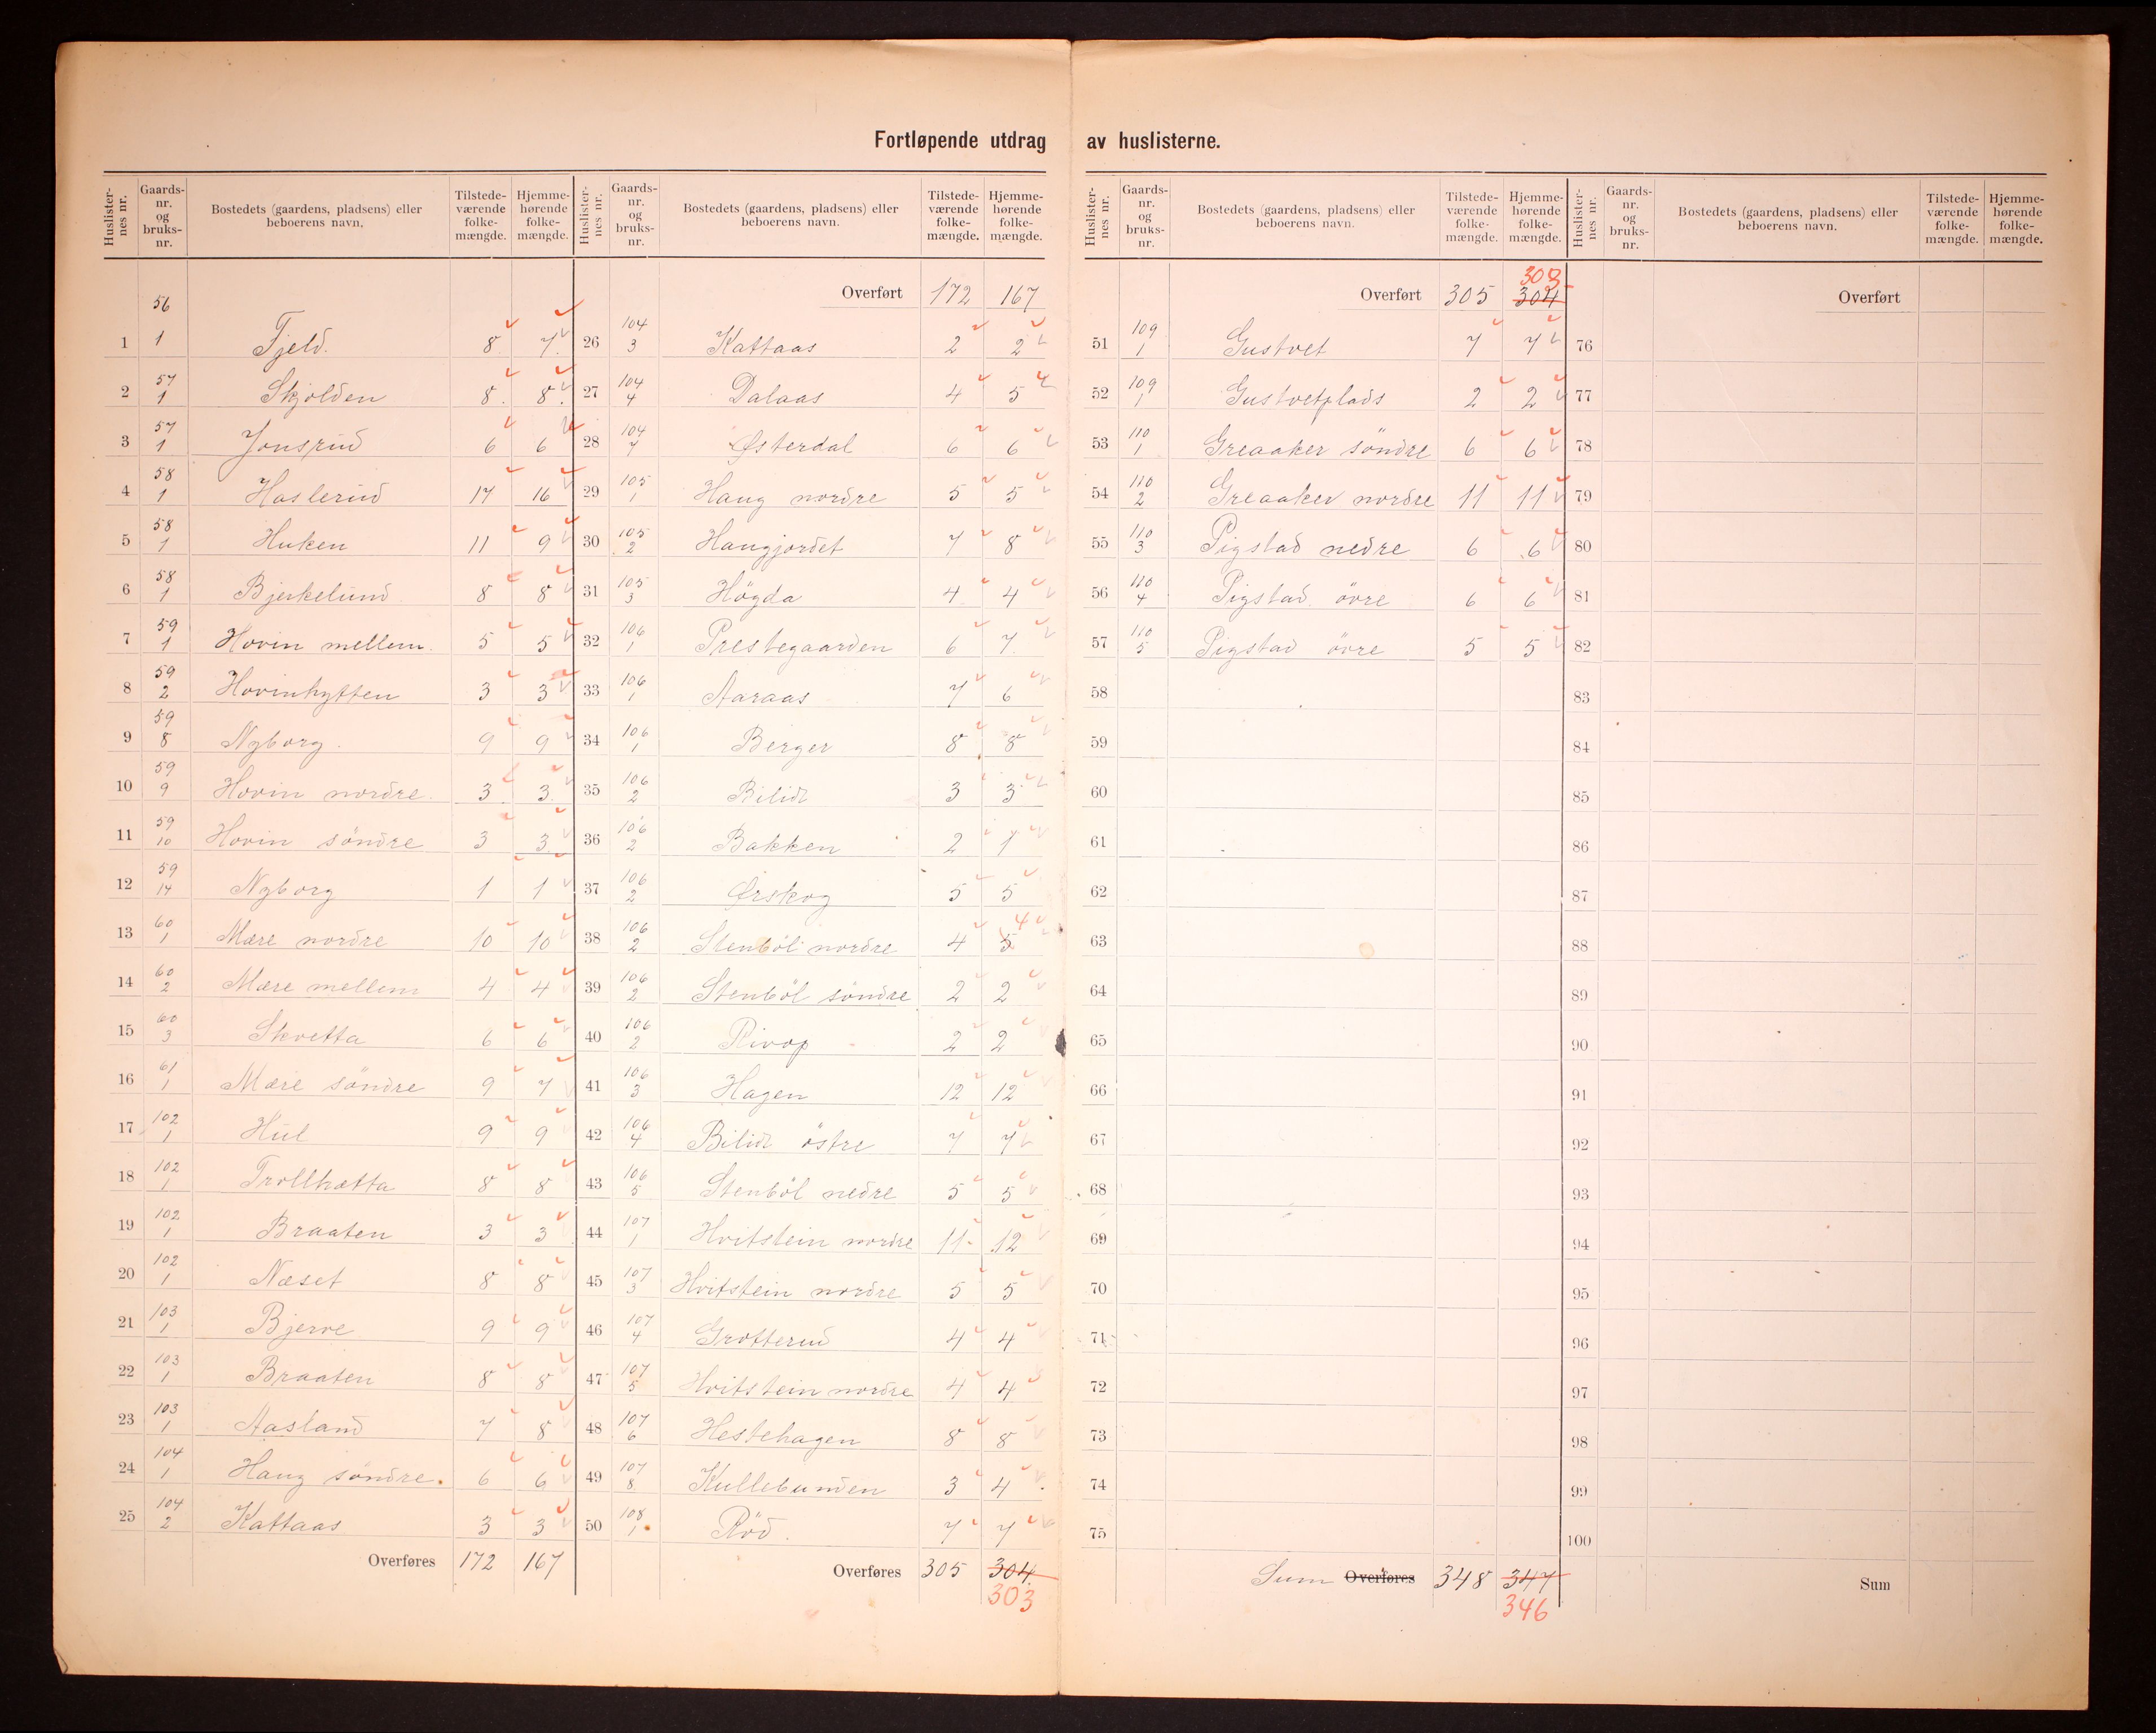 Fortløpende utdrag av huslisterne.
Huslister-nes nr. Gaards-nr. og bruks-nr. Bostedets (gaardens, pladsens) eller beboerens navn. Tilstede-værende folke-mængde. Hjemme-hørende folke-mængde.
56
1 1 Fjeld. 8 7
2 57 1 Skjolden 8 8
3 57 1 Jonsrud 6 6
4 58 1 Haslerud 17 16
5 58 1 Huken 11 9
6 58 1 Bjerkelund 8 8
7 59 1 Hovin mellem. 5 5
8 59 2 Hovinhytten 3 3
9 59 8 Nyborg. 9 9
10 59 9 Hovin nordre. 3 3
11 59 10 Hovin söndre 3 3
12 59 14 Nyborg 1 1
13 60 1 Mære nordre 10 10
14 60 2 Mære mellem 4 4
15 60 3 Skvetta 6 6
16 61 1 Mære söndre 9 7
17 102 1 Hul 9 9
18 102 1 Trollhætta 8 8
19 102 1 Braaten 3 3
20 102 1 Næset 8 8
21 103 1 Bjerve 9 9
22 103 1 Braaten 8 8
23 103 1 Aasland 7 8
24 104 1 Haug söndre. 6 6
25 104 2 Kattaas 3 3
Overføres 172 167
Huslister-nes nr. Gaards-nr. og bruks-nr. Bostedets (gaardens, pladsens) eller beboerens navn. Tilstede-værende folke-mængde. Hjemme-hørende folke-mængde.
Overført 172 167
26 104 3 Kattaas 2 2
27 104 4 Dalaas 4 5
28 104 7 Østerdal 6 6
29 105 1 Haug nordre 5 5
30 105 2 Haugjordet 7 8
31 105 3 Högda 4 4
32 106 1 Prestegaarden 6 7
33 106 1 Aaraas 7 6
34 106 1 Berger 8 8
35 106 2 Bilidt 3 3
36 106 2 Bakken 2 1
37 106 2 Ørskog 5 5
38 106 2 Stenböl nordre 4 5 4
39 106 2 Stenböl söndre 2 2
40 106 2 Rivop 2 2
41 106 3 Hagen 12 12
42 106 4 Bilidt östre 7 7
43 106 5 Stenböl nedre 5 5
44 107 1 Hvitstein nordre 11 12
45 107 3 Hvitstein nordre 5 5
46 107 4 Grotterud 4 4
47 107 5 Hvitstein nordre 4 4
48 107 6 Hestehagen 8 8
49 107 8 Kullebunden 3 4
50 108 1 Röd. 7 7
Overføres 305 304
303
Huslister-nes nr. Gaards-nr. og bruks-nr. Bostedets (gaardens, pladsens) eller beboerens navn. Tilstede-værende folke-mængde. Hjemme-hørende folke-mængde.
303
Overført 305 304
51 109 1 Gustvet 7 7
52 109 1 Gustvetplads 2 2
53 110 1 Greaaker söndre 6 6
54 110 2 Greaaker nordre 11 11
55 110 3 Pigstad nedre 6 6
56 110 4 Pigstad övre 6 6
57 110 5 Pigstad övre 5 5
58
59
60
61
62
63
64
65
66
67
68
69
70
71
72
73
74
75
Sum Overføres 348 347
346
Huslister-nes nr. Gaards-nr. og bruks-nr. Bostedets (gaardens, pladsens) eller beboerens navn. Tilstede-værende folke-mængde. Hjemme-hørende folke-mængde.
Overført
76
77
78
79
80
81
82
83
84
85
86
87
88
89
90
91
92
93
94
95
96
97
98
99
100
Sum